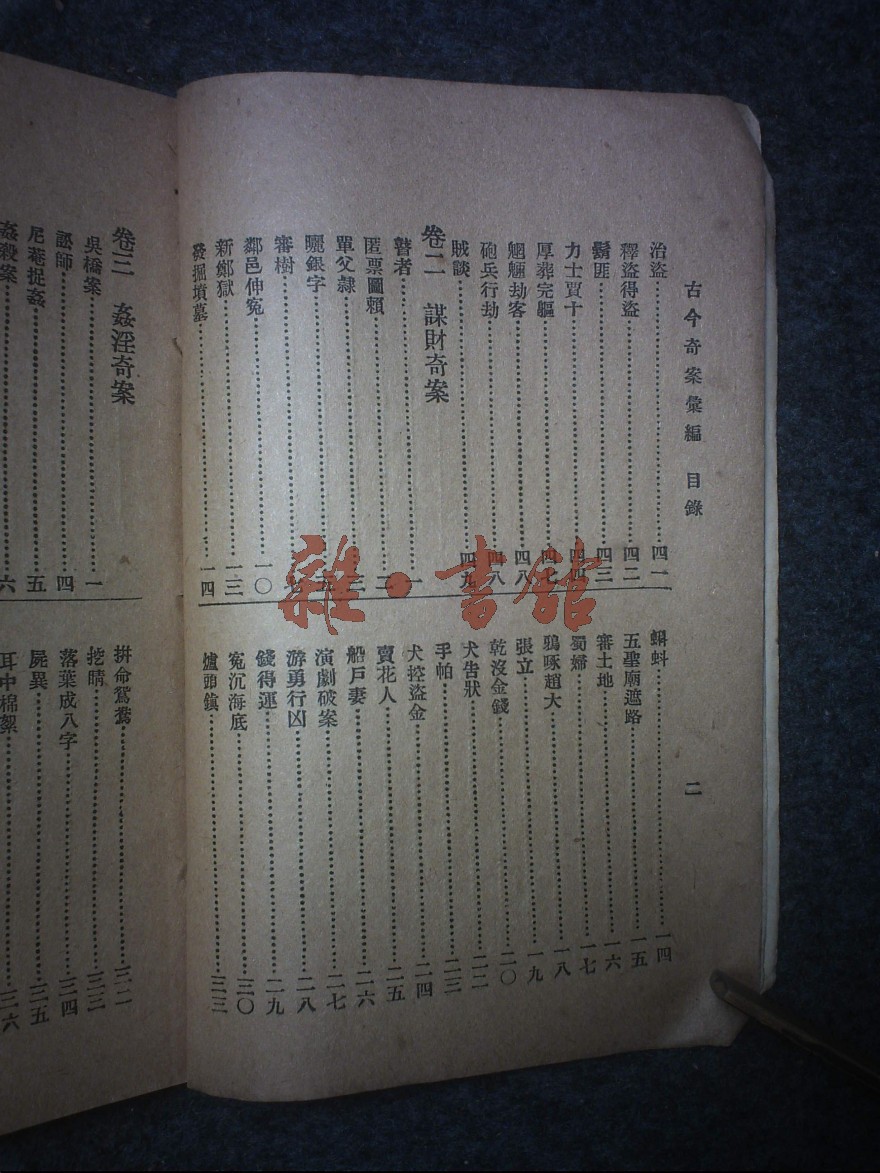 古今奇案彙編 目錄
二
治盜……四一
釋盜得盜……四二
鬍匪……四三
力士賈十……四四
厚葬完軀……四七
魍魎劫客……四八
砲兵行劫……四八
賊談……四九
卷二 謀財奇案
瞽者……一
匿票圖賴……二
單父隸……
曬銀字……
審樹……
鄰邑伸冤……一〇
新鄭獄……一三
發掘墳墓……一四
蝌蚪……一四
五聖廟遮路……一五
審土地……一六
蜀婦……一七
鴉啄趙大……一八
張立……一九
乾沒金錢……二〇
犬告狀……二二
手帕……二三
犬控盜金……二四
賣花人……二五
船戶妻……二六
演劇破案……二七
游勇行凶……二八
錢得運……二九
冤沉海底……三〇
爐頭鎮……三三
卷三 姦淫奇案
吳橋案……一
訟師……四
尼菴捉姦……五
姦殺案……六
拚命鴛鴦……三二
挖睛……三三
落葉成八字……三四
屍異……三五
耳中棉絮……三六
雜·書館